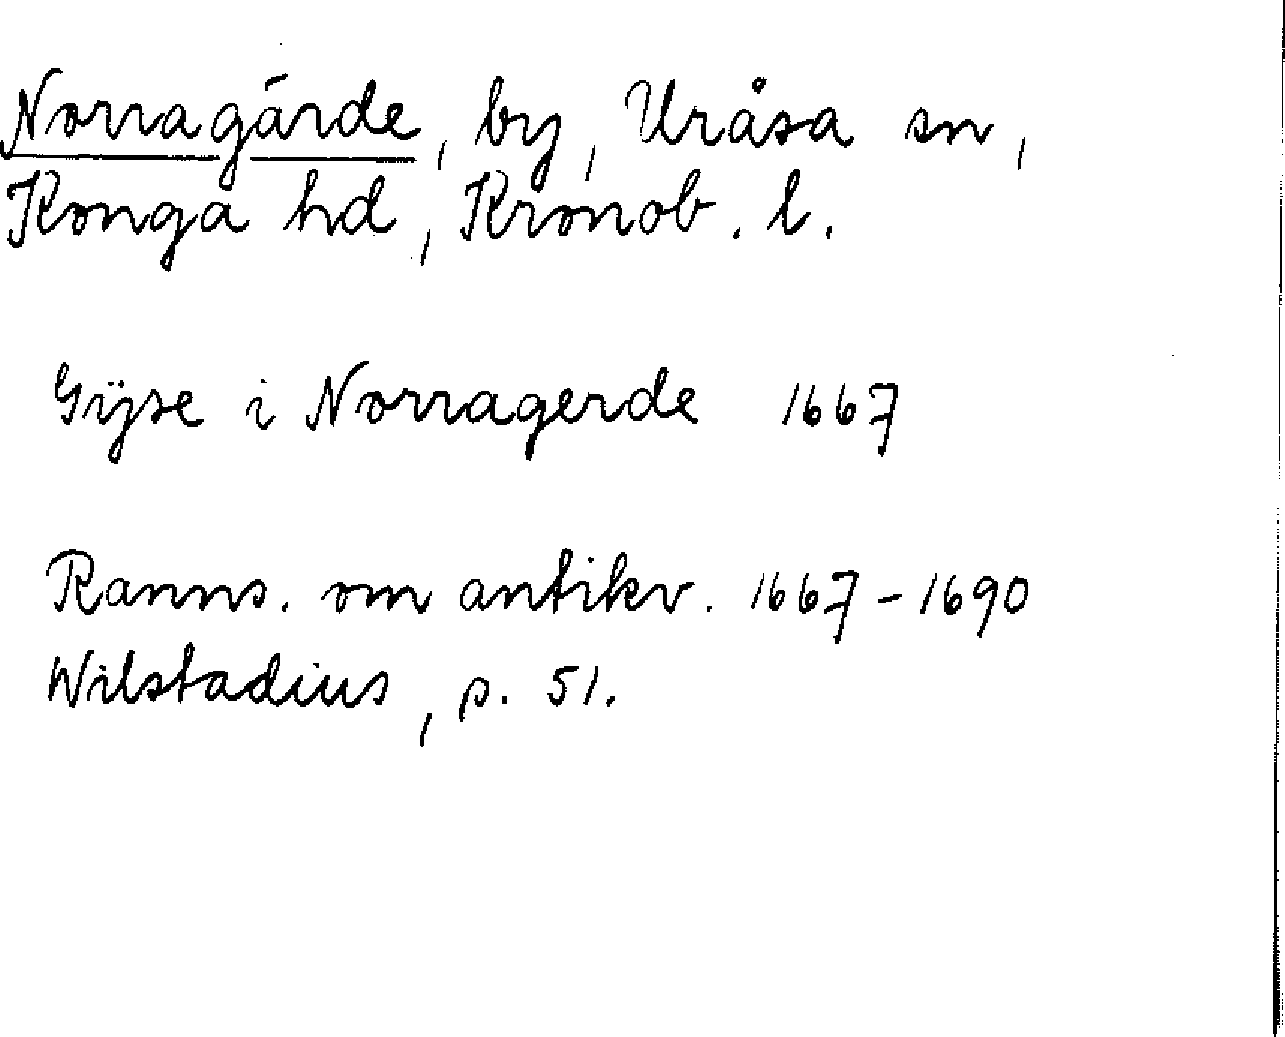 Norragärde, by, Uråsa sn,
Konga hd, Kronob. l.
Gÿse i Norragerde 1667
Ranns. om antikv. 1667-1690
Wilstadius, p. 51.